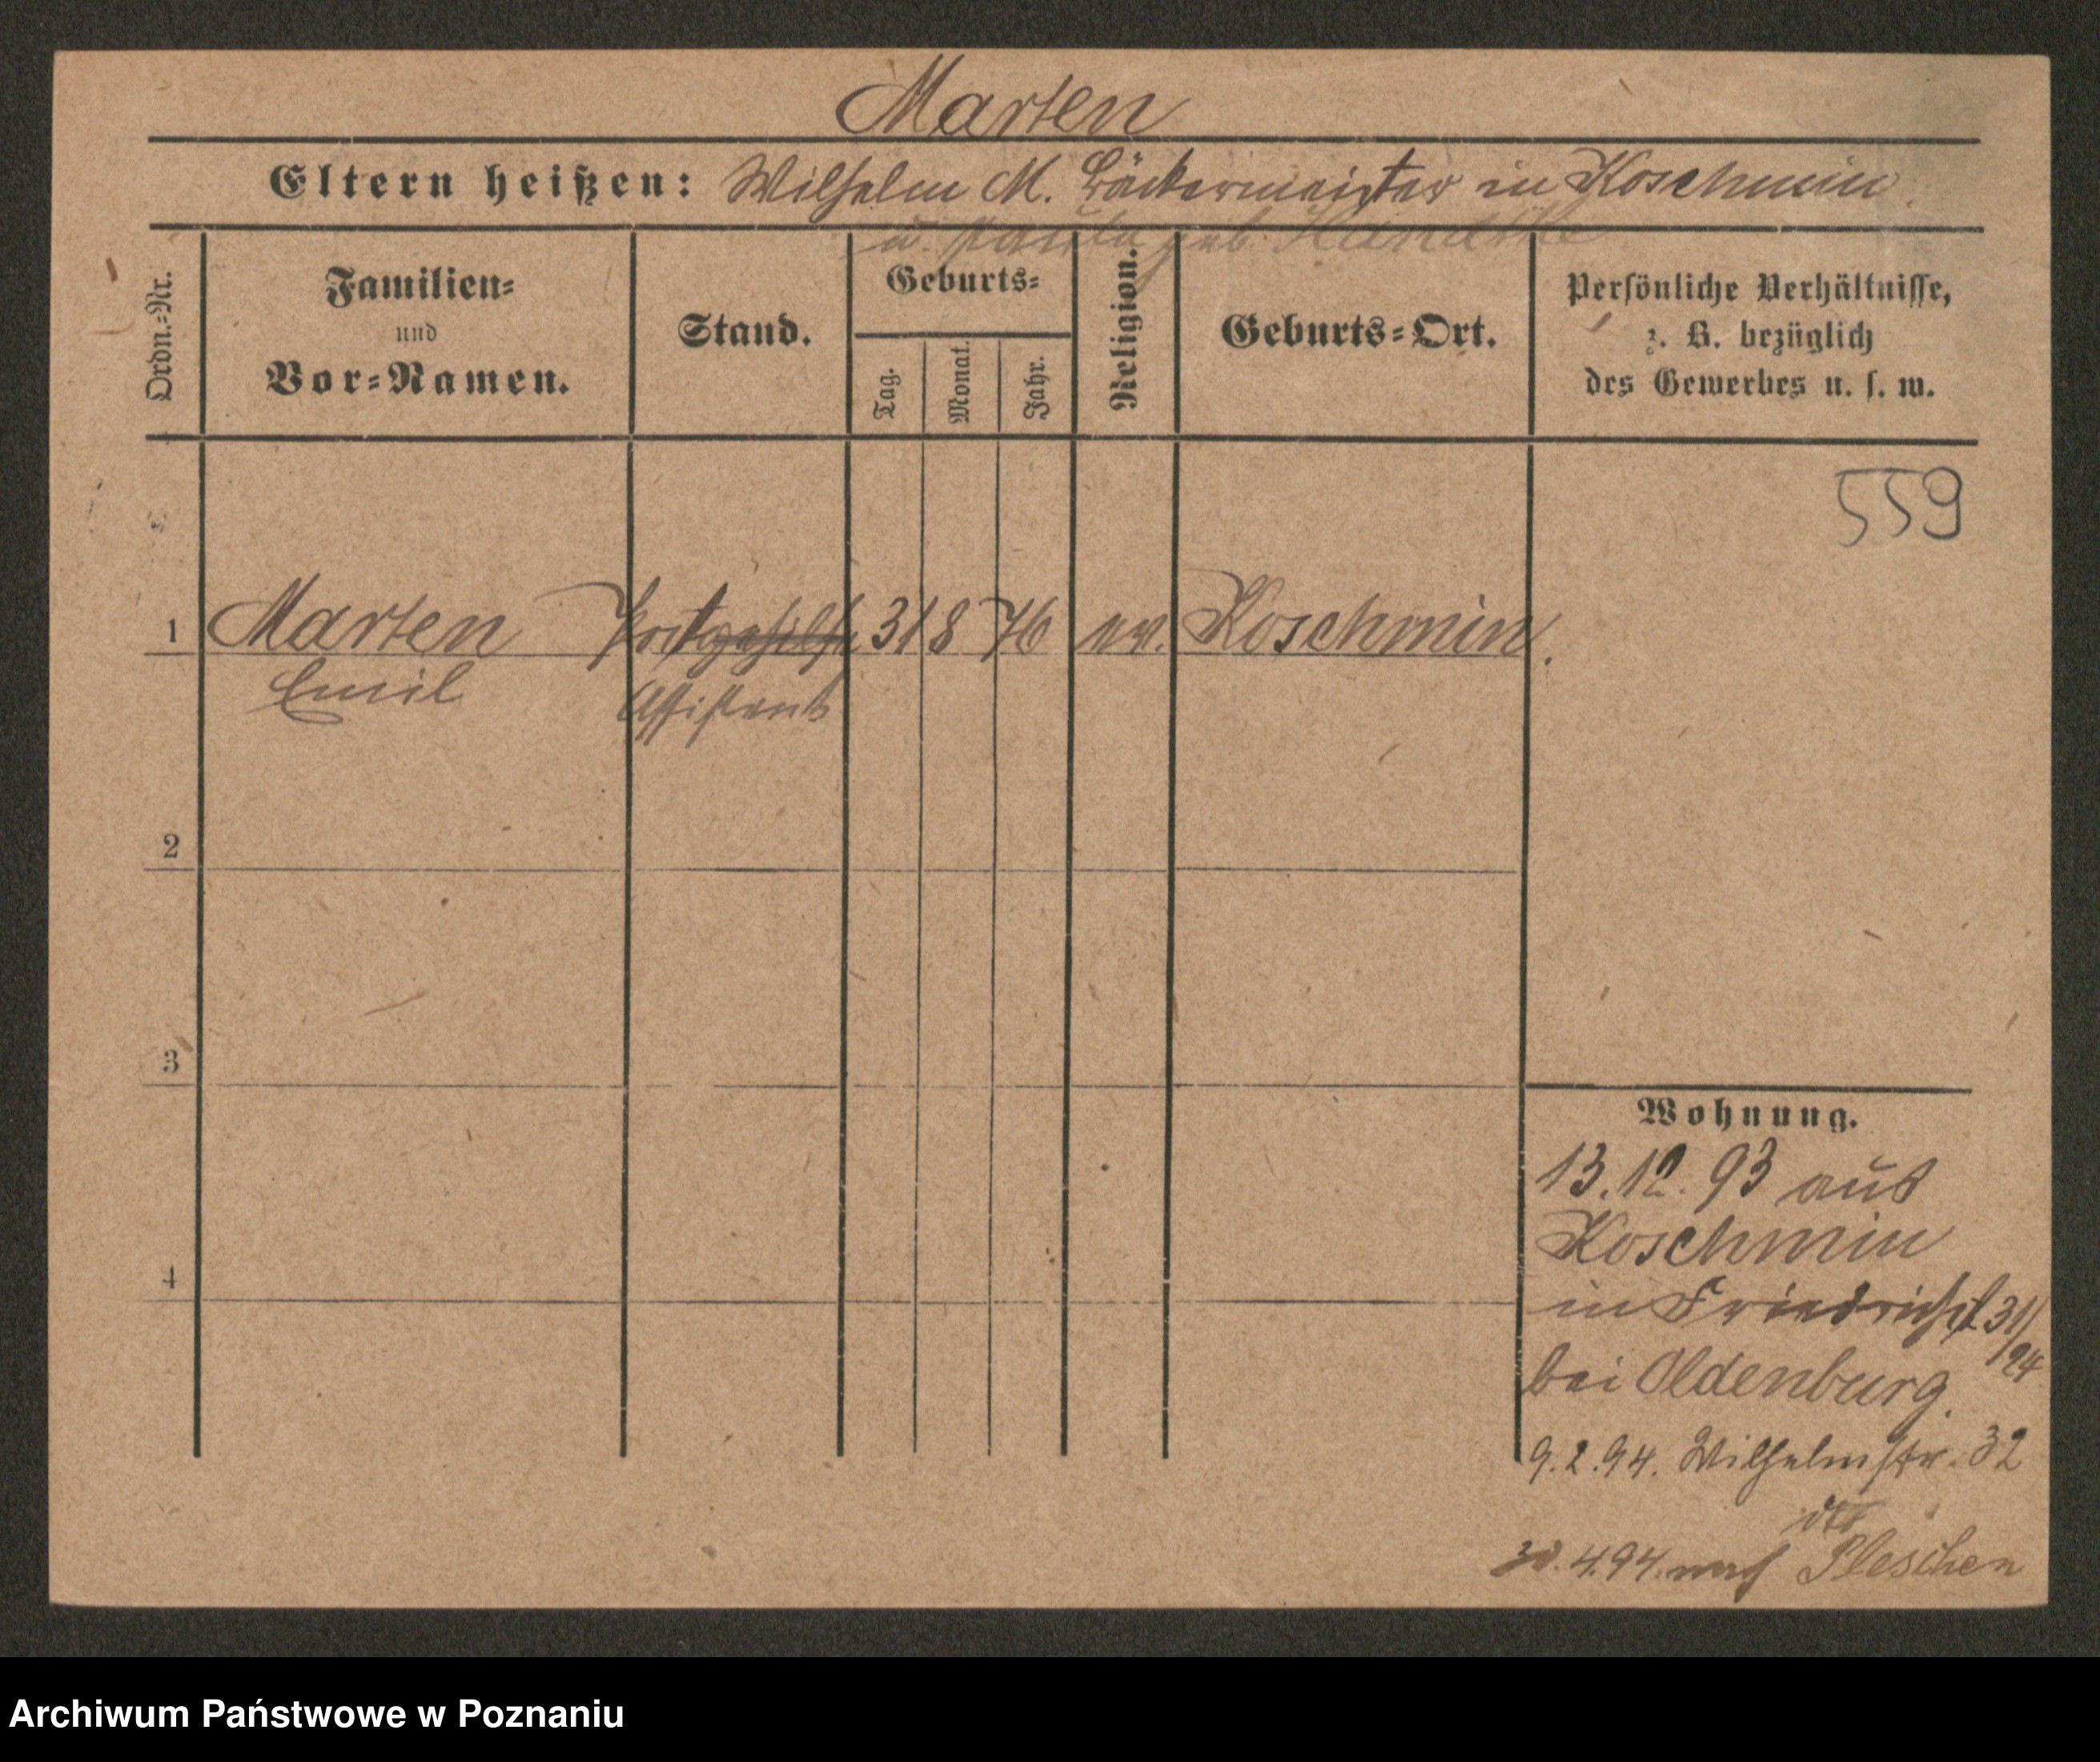 Marten
Eltern heißen: Wilhelm M. Bäckermeister in Koschmin.
u. Paula geb.
Ordn.-Nr.
Familien-
und
Vor-Namen.
Stand.
Geburts-
Tag.
Monat.
Jahr.
Religion.
Geburts-Ort.
Persönliche Verhältnisse,
z. B. bezüglich
des Gewerbes u. s. w.
559
1 Marten Postgehilfe 31 8 76 ev. Koschmin.
Emil Assistent
2
3
4
Wohnung.
13.12.93 aus
Koschmin
in Friedrichst 31/
94
bei Oldenburg.
9.2.94. Wilhelmstr. 32
30.4.94. nach Pleschen
Archiwum Państwowe w Poznaniu